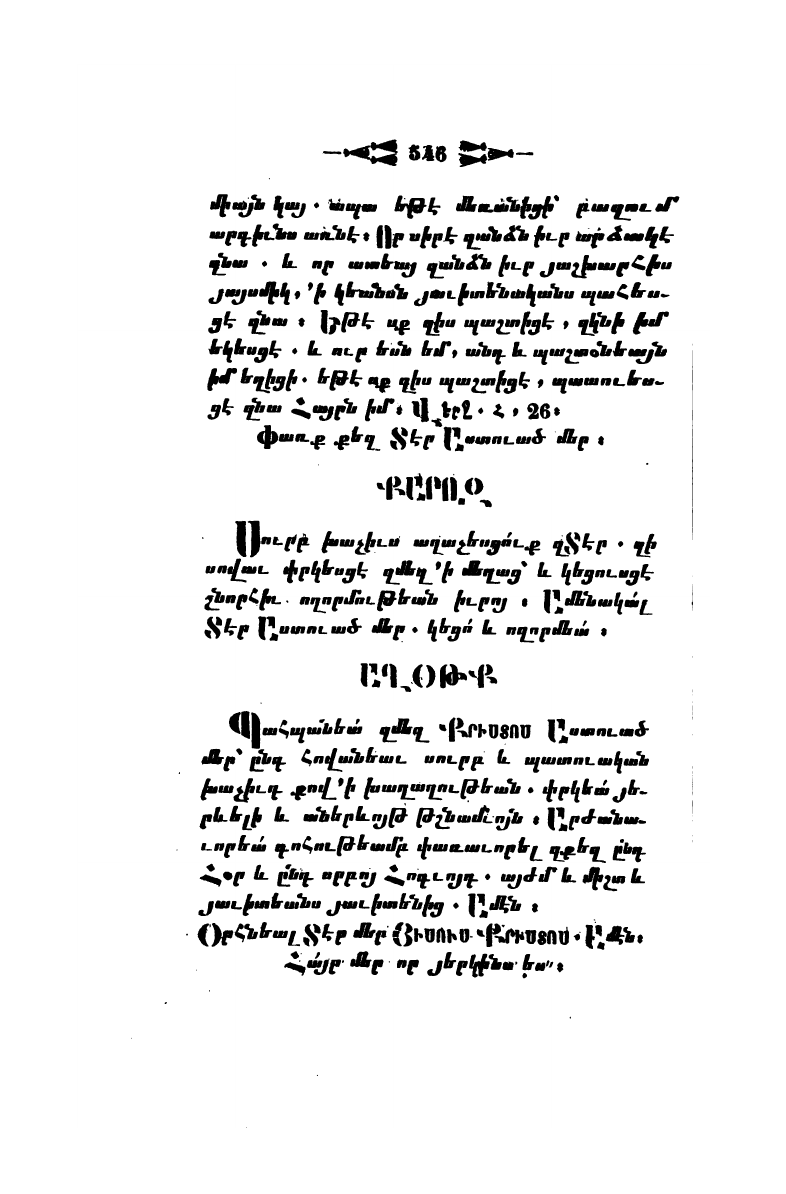 546
միայն կայ. ապա եթէ մեռանիցի՝ բազում
արդիւնս առնէ։ Որ սիրէ զանձն իւր արձակէ
զնա. և որ ատեայ զանձն իւր յաշխարհիս
յայսմիկ, ՚ի կեանսն յաւիտենականս պահես-
ցէ զնա։ Եթէ ոք զիս պաշտիցէ, զկնի իմ
եկեսցէ. և ուր եսն եմ, անդ և պաշտօնեայն
իմ եղիցի. եթէ ոք զիս պաշտիցէ, պատուես-
ցէ զնա Հայրն իմ։ Վերջ. Հ, 26։
Փառք քեզ Տէր Աստուած մեր։
ՔԱՐՈԶ
Սուրբ խաչիւս աղաչեսցուք զՏէր. զի
սովաւ փրկեսցէ զմեզ ՚ի մեղաց՝ և կեցուսցէ
շնորհիւ ողորմութեան իւրոյ։ Ամենակալ
Տէր Աստուած մեր. կեցո՛ և ողորմեա՛։
ԱՂՕԹՔ
Պահպանեա՛ զմեզ ՔՐԻՍՏՈՍ Աստուած
մեր՝ ընդ հովանեաւ սուրբ և պատուական
խաչիւդ քով ՚ի խաղաղութեան. փրկեա՛ յե-
րևելի և աներևոյթ թշնամւոյն։ Արժանա-
ւորեա՛ գոհութեամբ փառաւորել զքեզ ընդ
Հօր և ընդ սրբոյ Հոգւոյդ. այժմ և միշտ և
յաւիտեանս յաւիտենից. Ամէն։
Օրհնեալ Տէր մեր ՅԻՍՈՒՍ ՔՐԻՍՏՈՍ. Ամէն։
Հայր մեր որ յերկինս ես՛՛։